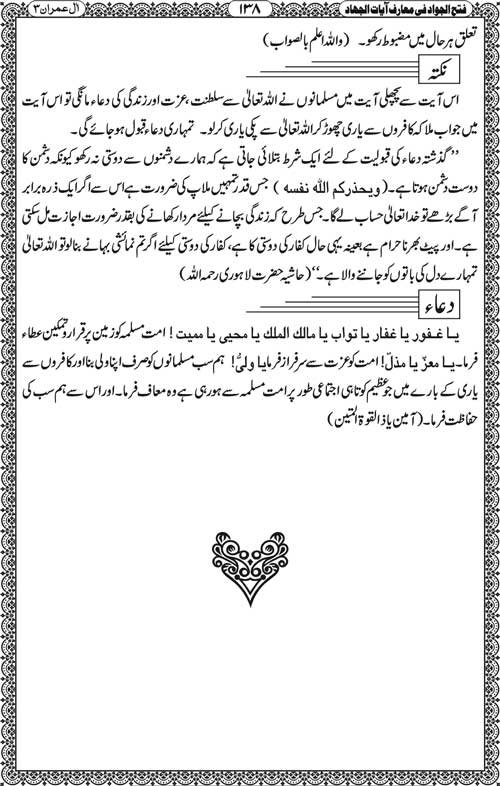 فتح الجواد فی معارف آیات الجهاد ۱۳۸ آل عمران ۳
تعلق ہر حال میں مضبوط رکھو۔ (واللہ اعلم بالصواب)
نکتہ
اس آیت سے پچھلی آیت میں مسلمانوں نے اللہ تعالیٰ سے سلطنت، عزت اور زندگی کی دعاء مانگی تو اس آیت
میں جواب ملا کہ کافروں سے یاری چھوڑ کر اللہ تعالیٰ سے پکی یاری کرلو۔ تمہاری دعاء قبول ہو جائے گی۔
’’گذشتہ دعاء کی قبولیت کے لئے ایک شرط بتلائی جاتی ہے کہ ہمارے دشمنوں سے دوستی نہ رکھو کیونکہ دشمن کا
دوست دشمن ہوتا ہے۔ (ویحذرکم الله نفسه) جس قدر تمہیں ملاپ کی ضرورت ہے اس سے اگر ایک ذرہ برابر
آگے بڑھے تو خدا تعالیٰ حساب لے گا۔ جس طرح کہ زندگی بچانے کیلئے مردار کھانے کی بقدر ضرورت اجازت مل سکتی
ہے۔ اور پیٹ بھرنا حرام ہے بعینہ یہی حال کفار کی دوستی کا ہے، کفار کی دوستی کیلئے اگر تم نمائشی بہانے بنالو تو اللہ تعالیٰ
تمہارے دل کی باتوں کو جاننے والا ہے۔‘‘ (حاشیہ حضرت لاہوری رحمہ اللہ)
دعاء
یا غفور یا غفار یا تواب یا مالك الملك یا محیی یا ممیت! امت مسلمہ کو زمین پر قرار و تمکین عطاء
فرما۔ یا معزّ یا مذلّ! امت کو عزت سے سرفراز فرما یا ولیُّ! ہم سب مسلمانوں کو صرف اپنا ولی بنا اور کافروں سے
یاری کے بارے میں جو عظیم کوتاہی اجتماعی طور پر امت مسلمہ سے ہو رہی ہے وہ معاف فرما۔ اور اس سے ہم سب کی
حفاظت فرما۔ (آمین یا ذالقوۃ المتین)